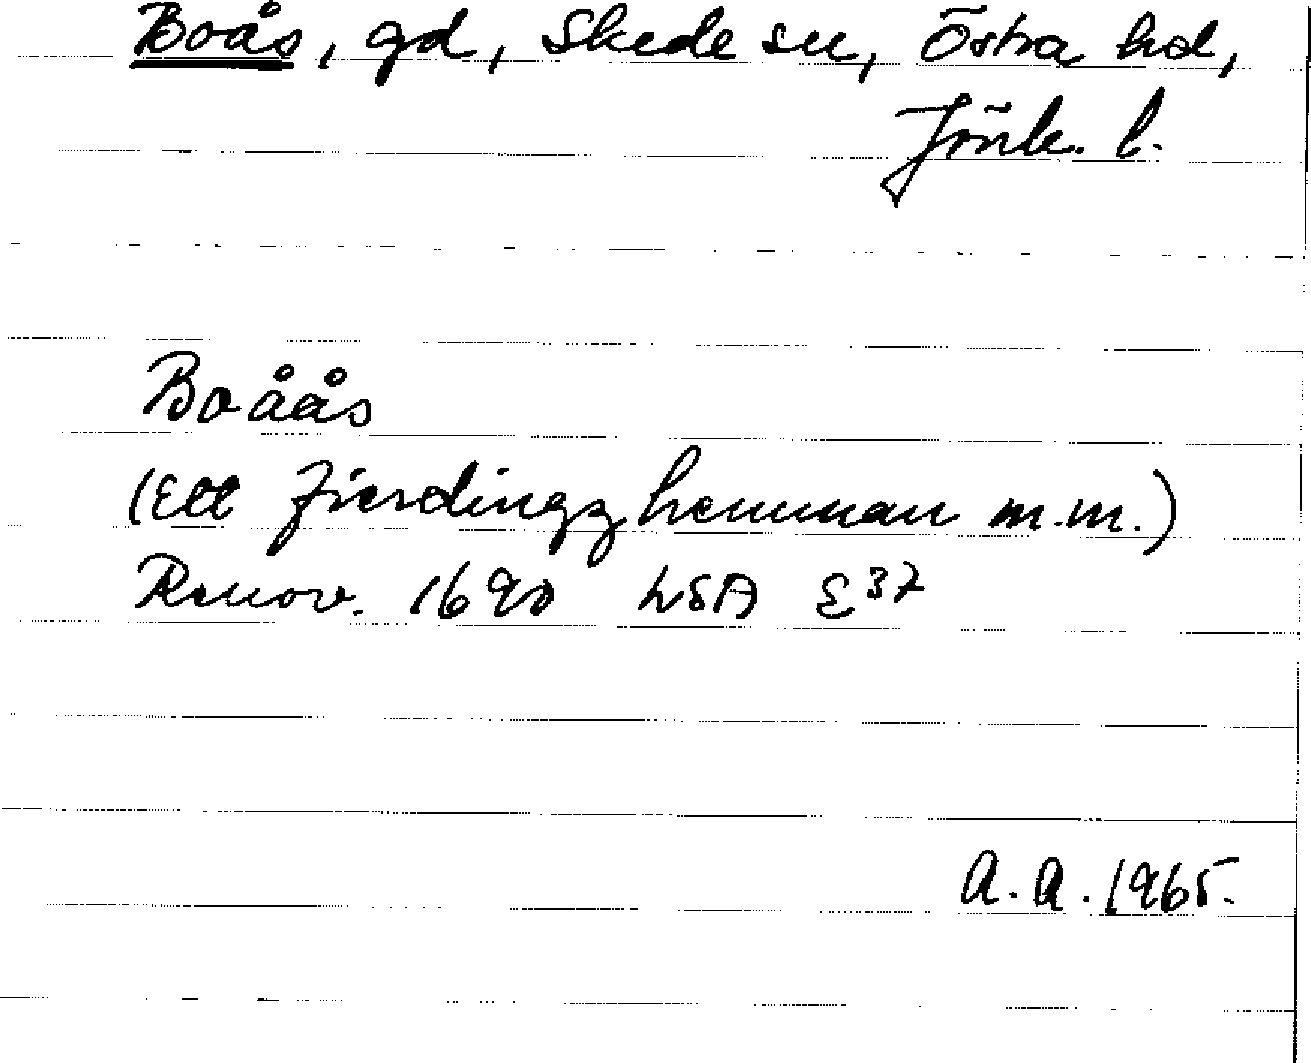 Boås, gd, Skede sn, Östra hd,
Jönk. l.
Boåås
(Ett fierdingz hemman m.m.)
Renov. 1690 LSA E 37
A.A. 1965.